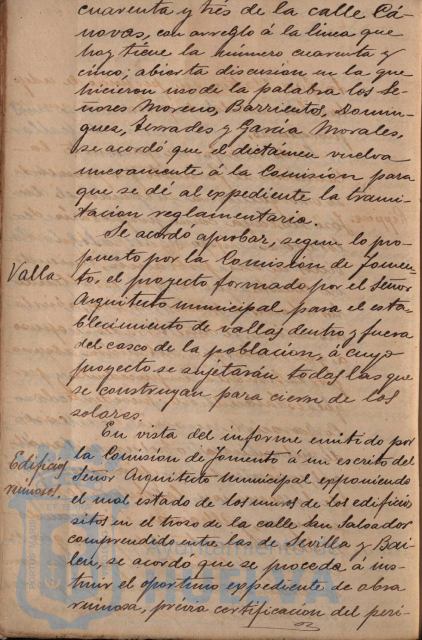 cuarenta y trés de la calle Cá-
novas, con arreglo á la linea que
hoy tiene la número cuarenta y
cinco; abierta discusion en la que
hicieron uso de la palabra los Se-
ñores Moreno, Barrientos, Domin-
guez, Terrades y García Morales,
se acordó que el dictámen vuelva
nuevamente á la Comision para
que se dé al expediente la trami-
tacion reglamentaria.
Valla
Se acordó aprobar, segun lo pro-
puesto por la Comisión de Fomen-
to, el proyecto formado por el Señor
Arquitecto municipal para el esta-
blecimiento de vallas dentro y fuera
del casco de la poblacion, á cuyo
proyecto se sujetarán todas las que
se construyan para cierre de los
solares.
Edificios
ruinosos.
En vista del informe emitido por
la Comisión de Fomento á un escrito del
Señor Arquitecto municipal exponiendo
el mal estado de los muros de los edificios
sitos en el trozo de la calle San Salvador
comprendido entre las de Sevilla y Bai-
len, se acordó que se proceda á ins-
truir el oportuno expediente de obra
ruinosa, previa certificacion del peri-
Ayuntamiento de
HUELVA